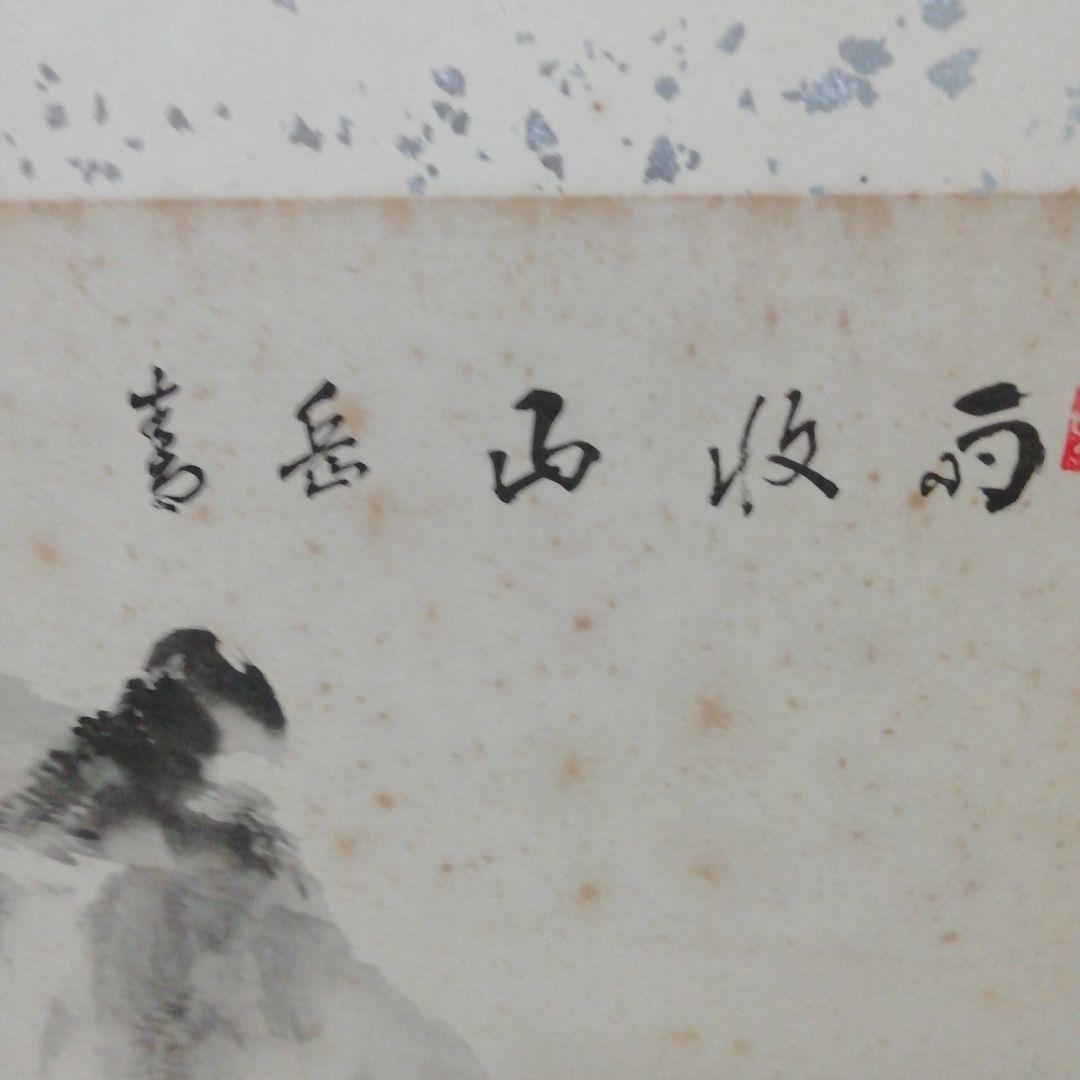 雨收山岳青